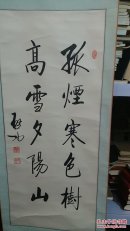 孤煙寒色樹
高雪夕陽山
启功